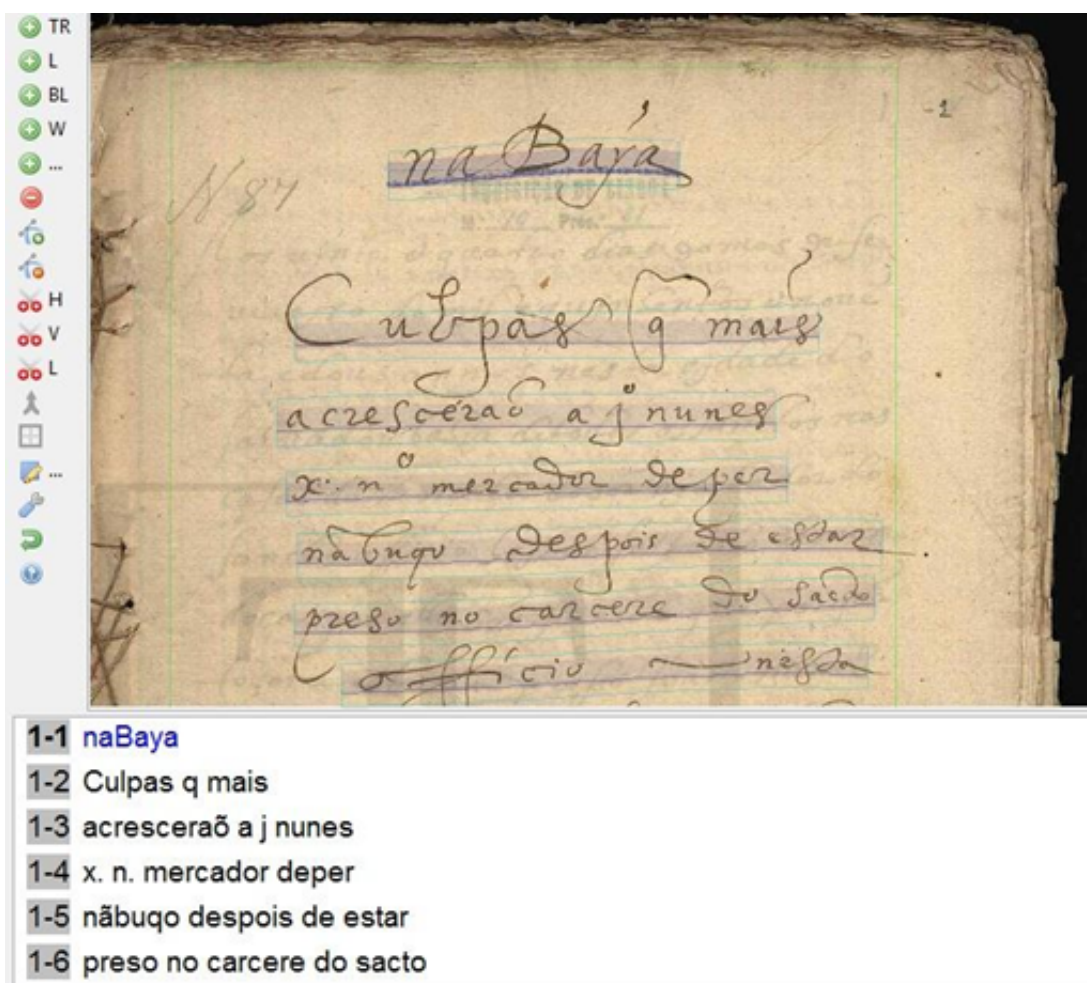 TR
L
BL
W
...
H
V
L
...
-1
na Bayá
N 87
INQUISIÇÃO DE LISBOA
Proc.
Culpas q̃ mais
acrescéraõ a j.º nunes
x. n.º mercador de per
nãbuqu despois de estar
preso no carcere do sacto
officio nesta
1-1 naBaya
1-2 Culpas q mais
1-3 acresceraõ a j nunes
1-4 x. n. mercador deper
1-5 nãbuqo despois de estar
1-6 preso no carcere do sacto